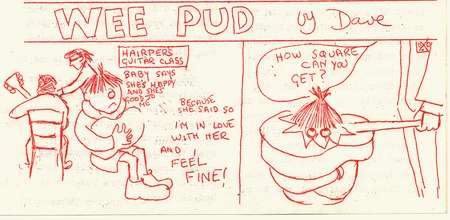 WEE PUD by Dave
HAIRPER'S
GUITAR CLASS
BABY SAYS
SHE'S HAPPY
AND SHE'S
GOOD TO
ME
BECAUSE
SHE SAID SO
I'M IN LOVE
WITH HER
AND I
FEEL
FINE!
HOW SQUARE
CAN YOU
GET?